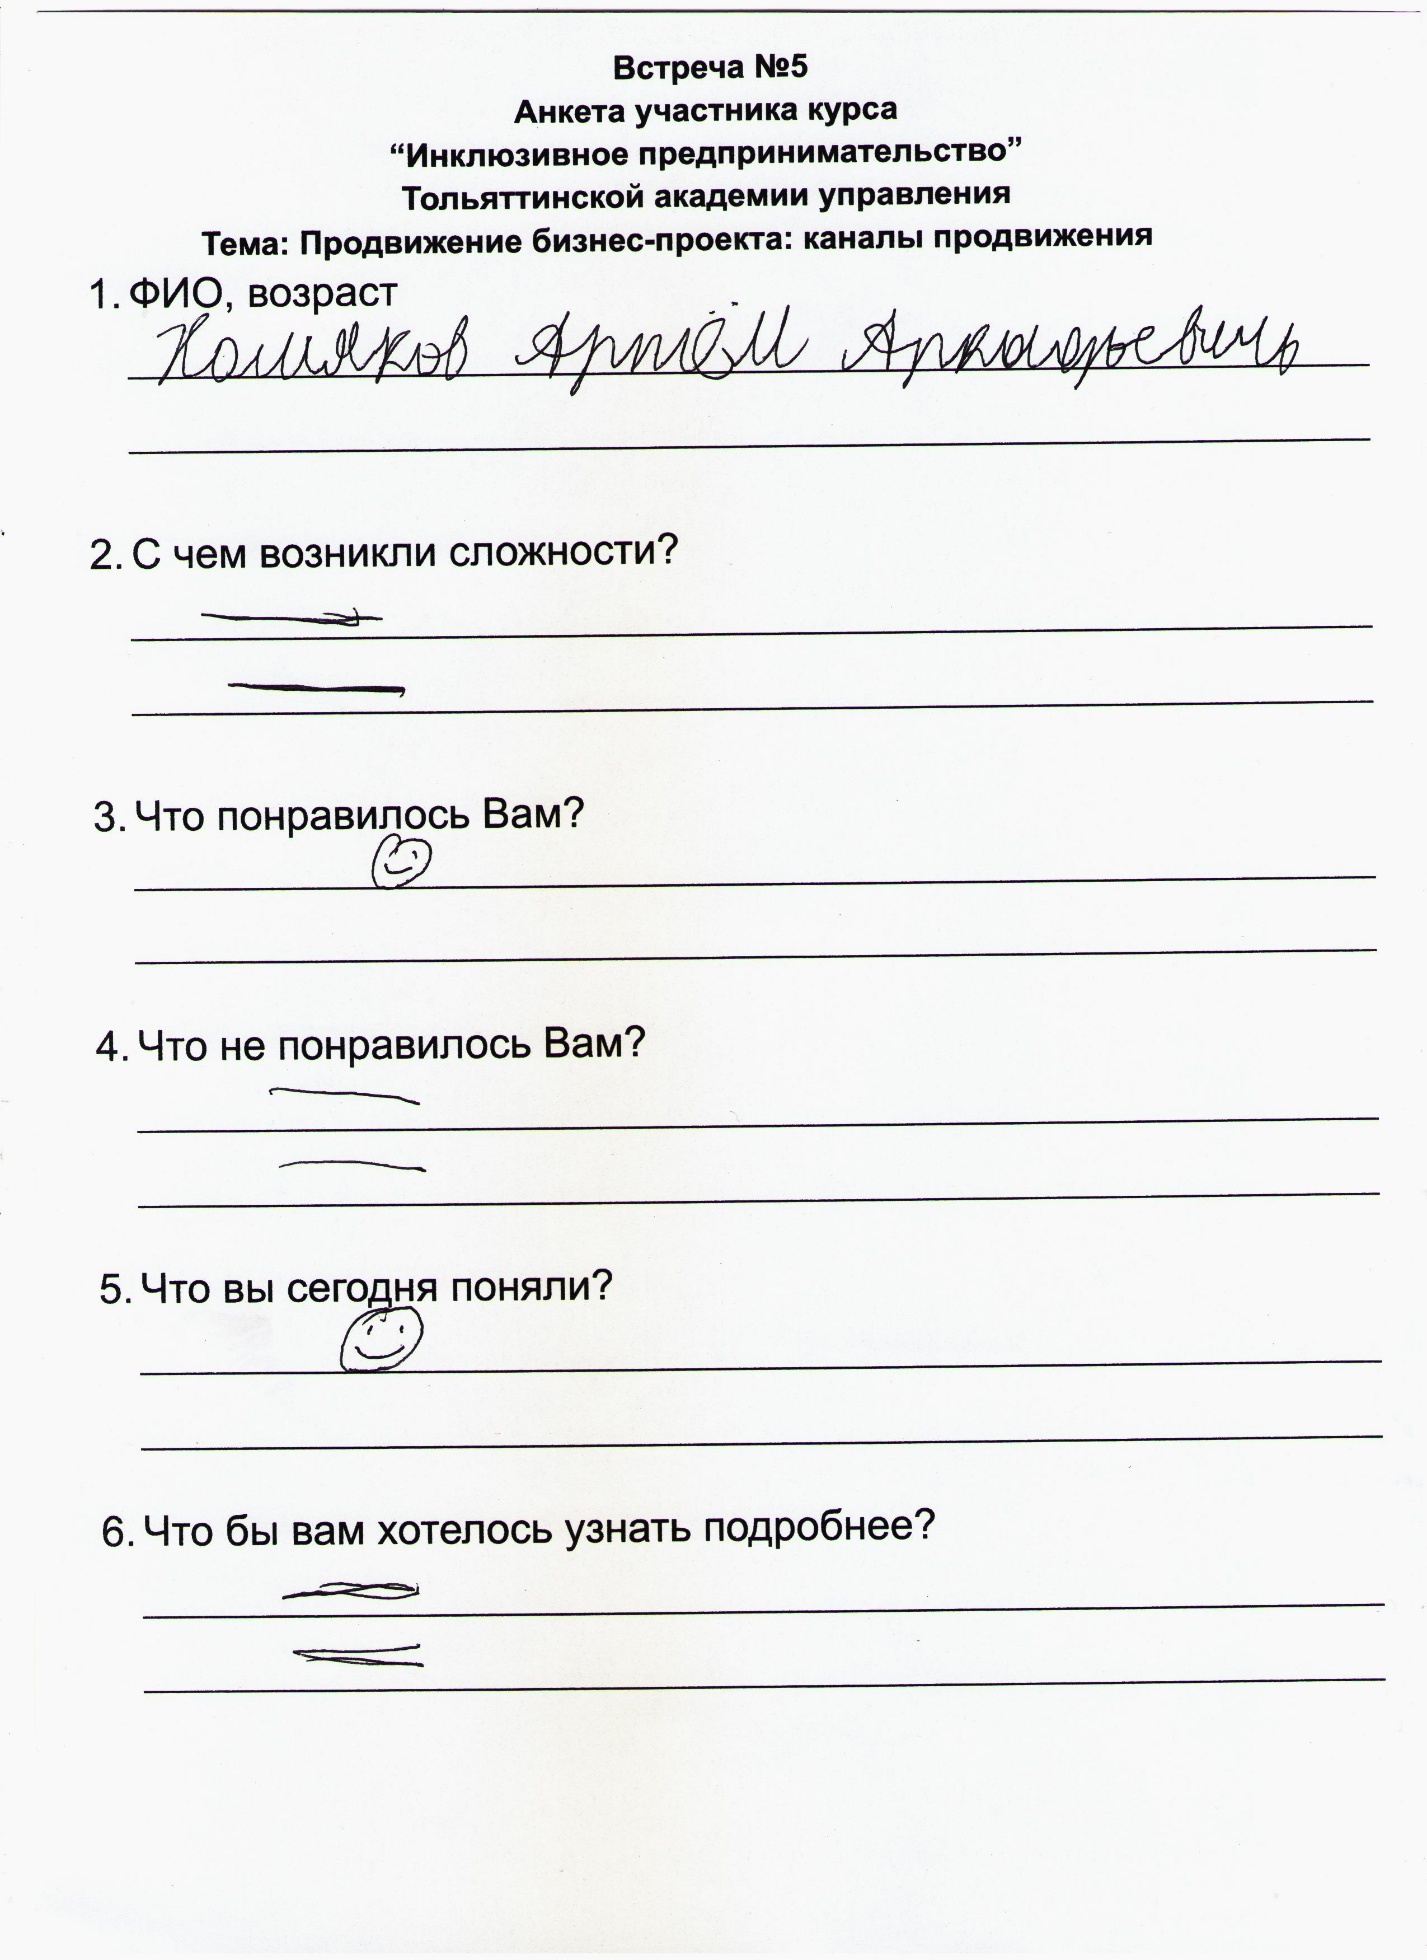 Встреча №5
Анкета участника курса
“Инклюзивное предпринимательство”
Тольяттинской академии управления
Тема: Продвижение бизнес-проекта: каналы продвижения
1. ФИО, возраст
Артём Аркадьевичь
2. С чем возникли сложности?
3. Что понравилось Вам?
4. Что не понравилось Вам?
5. Что вы сегодня поняли?
6. Что бы вам хотелось узнать подробнее?